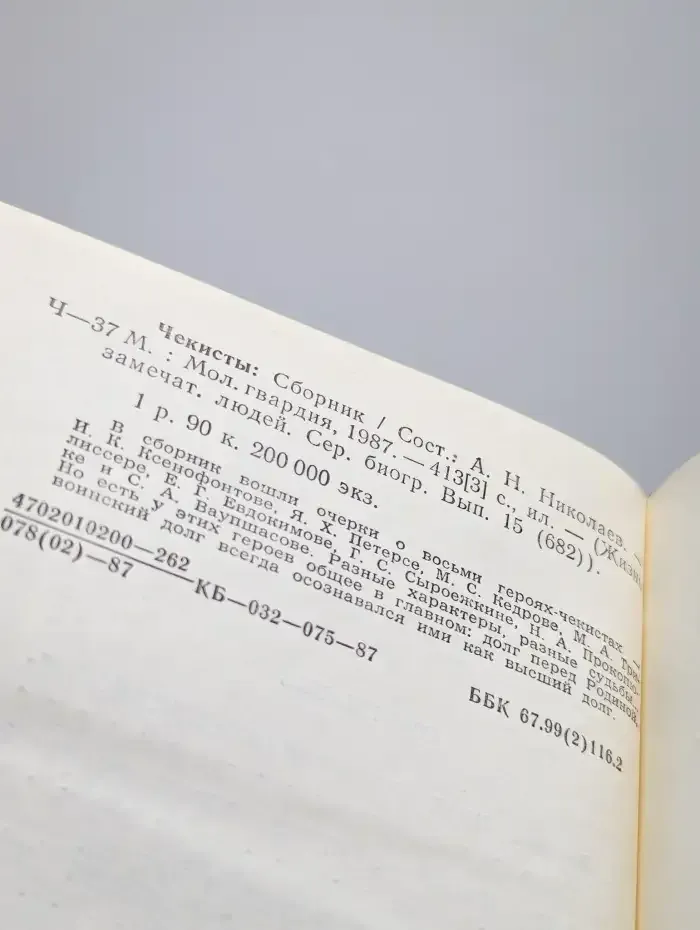 Чекисты: Сборник / Сост.: А. Н. Николаев. —
Ч—37 М. : Мол. гвардия, 1987. — 413[3] с., ил. — (Жизнь
замечат. людей. Сер. биогр. Вып. 15 (682)).
1 р. 90 к. 200 000 экз.
В сборник вошли очерки о восьми героях-чекистах —
И. К. Ксенофонтове, Я. Х. Петерсе, М. С. Кедрове, М. А. Три-
лиссере, Е. Г. Евдокимове, Г. С. Сыроежкине, Н. А. Прокопю-
ке и С. А. Ваупшасове. Разные характеры, разные судьбы.
Но есть у этих героев общее в главном: долг перед Родиной,
воинский долг всегда осознавался ими как высший долг.
4702010200—262
078(02)—87
КБ—032—075—87
ББК 67.99(2)116.2